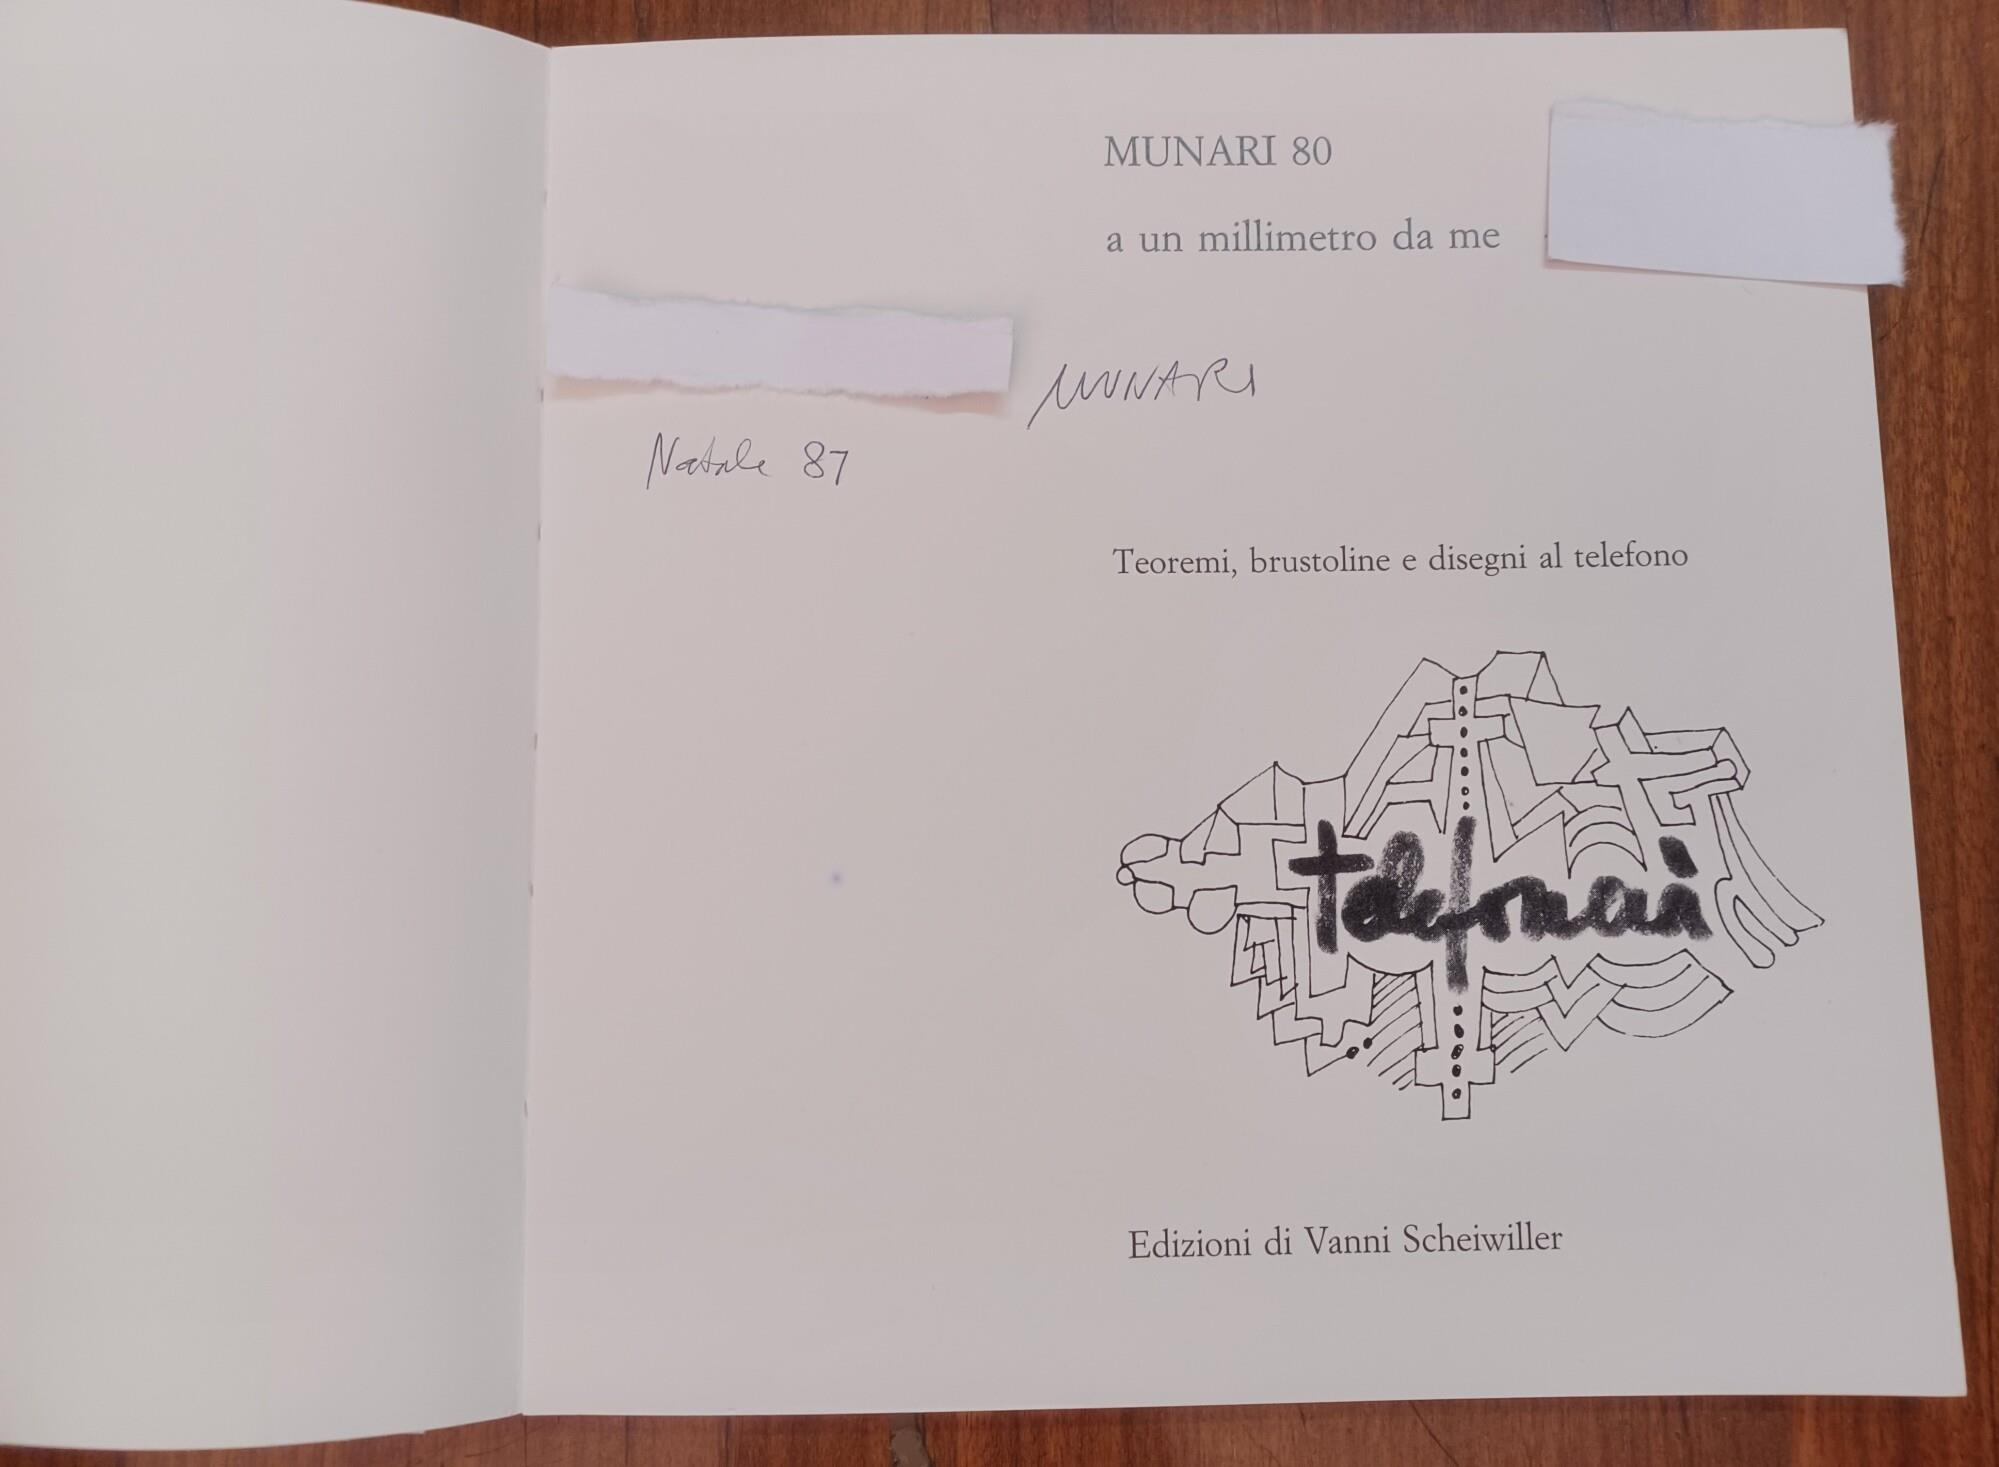 MUNARI 80
a un millimetro da me
MUNARI
Natale 87
Teoremi, brustoline e disegni al telefono
telefonerà
Edizioni di Vanni Scheiwiller